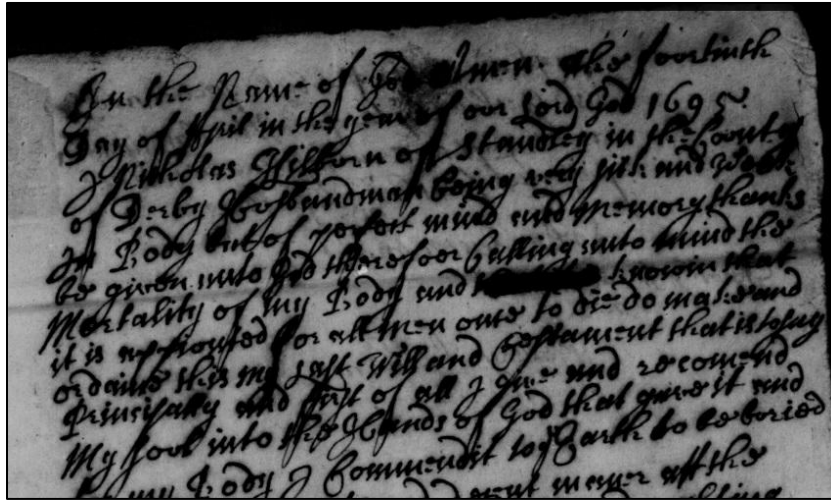 In the Name of God Amen. the foortinth
Day of April in the year of oor Lord God 1695
I Nicholas of Standley in the Counte
of Derby Hosbandman being very sick and weak
In Body but of perfect mind and Memory thanks
be given unto God therefoor Calling unto mind the
Mortality of my Body and knowin that
it is appointed for all men once to die do make and
ordaine this my Last Will and Testament that is to say
Principally and first of all I give and recomend
My sool into the Hands of God that gave it and
my Body I Commend it to the Earth to be boried